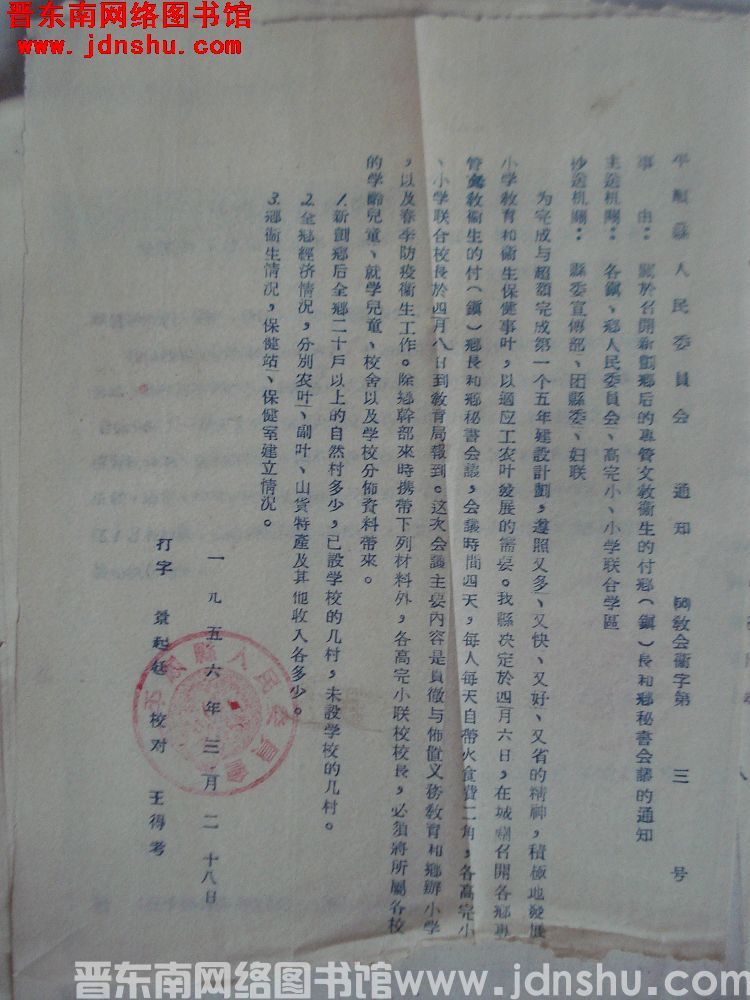 晋东南网络图书馆
www.jdnshu.com
平順縣人民委員會 通知 教会衞字第 三 号
事 由：關於召開新劃鄉后的專管文教衞生的付鄉（鎮）長和鄉秘書会議的通知
主送机關：各鎮、鄉人民委員会、高完小、小学联合学區
抄送机關：縣委宣傳部、团縣委、妇联
为完成与超額完成第一个五年建設計劃，遵照又多、又快、又好、又省的精神，積極地發展
小学教育和衞生保健事叶，以適应工农叶發展的需要。我縣决定於四月六日，在城關召開各鄉專
管文教衞生的付（鎮）鄉長和鄉秘書会議，会議時間四天，每人每天自帶火食費二角，各高完小
、小学联合校長於四月八日到教育局報到。这次会議主要内容是貫徹与佈置义務教育和鄉辦小学
，以及春季防疫衞生工作。除鄉幹部來時携帶下列材料外，各高完小联校校長，必須將所屬各校
的学齡兒童、就学兒童、校舍以及学校分佈資料帶來。
1.新劃鄉后全鄉二十戶以上的自然村多少，已設学校的几村，未設学校的几村。
2.全鄉經济情况，分別农叶、副叶、山貨特產及其他收入各多少。
3.鄉衞生情况，保健站、保健室建立情况。
一九五六年三月二十八日
平順縣人民委員會
打字 景起 校对 王得考
晋东南网络图书馆www.jdnshu.com